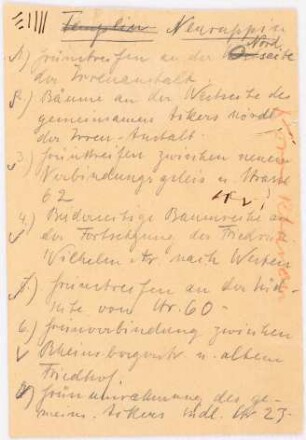 Templin Neuruppin
1) Grünstreifen an der Nordseite
der Irrenanstalt.
2) Bäume an der Westseite des
gemeinsamen Ackers nördl.
der Irren-Anstalt.
3) Grünstreifen zwischen neuem
Verbindungsgleis u. Strasse
62
4.) Beiderseitige Baumreihe an
der Fortsetzung der Friedr.
Wilhelm-Str nach Westen
5) Grünstreifen an der Süd-
seite vom Str. 60-
6.) Grünverbindung zwischen
Rheinsbergerstr u. altem
Friedhof.
Grünumrahmung des ge-
meins. Ackers südl. Str 23-